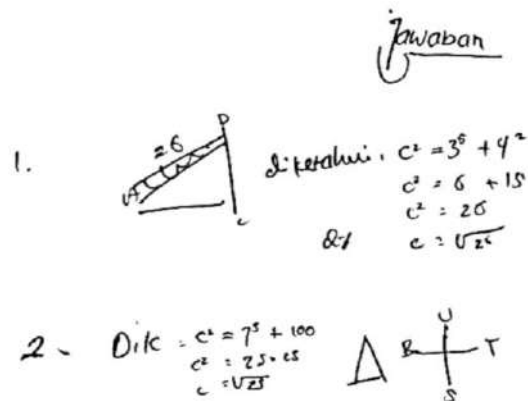 Jawaban
1.
= 6
A
D
C
diketahui. c² = 3⁵ + 4²
c² = 6 + 15
c² = 26
c = √26
2. Dik = c² = 7⁵ + 100
c² = 25 × 25
c = √25
U
B T
S